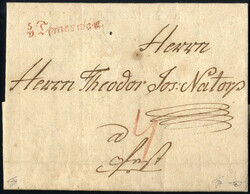 v. Temesvar
Herrn
Herrn Theodor Jos: Natorp
a
Pest